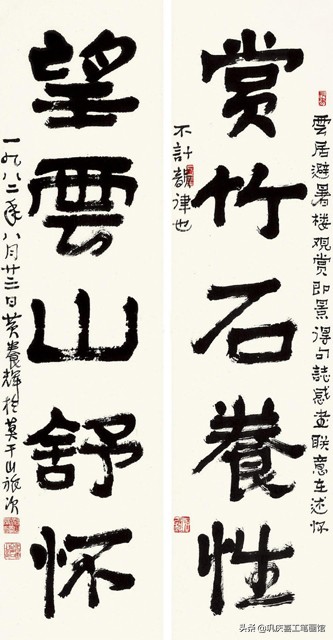 雲居避暑楼观赏即景得句誌感联意在述怀
賞竹石養性
不計韻律也
望雲山舒怀
一九八二年八月廿三日黄養輝於莫干山旅次
头条 @巩庆喜工笔画馆